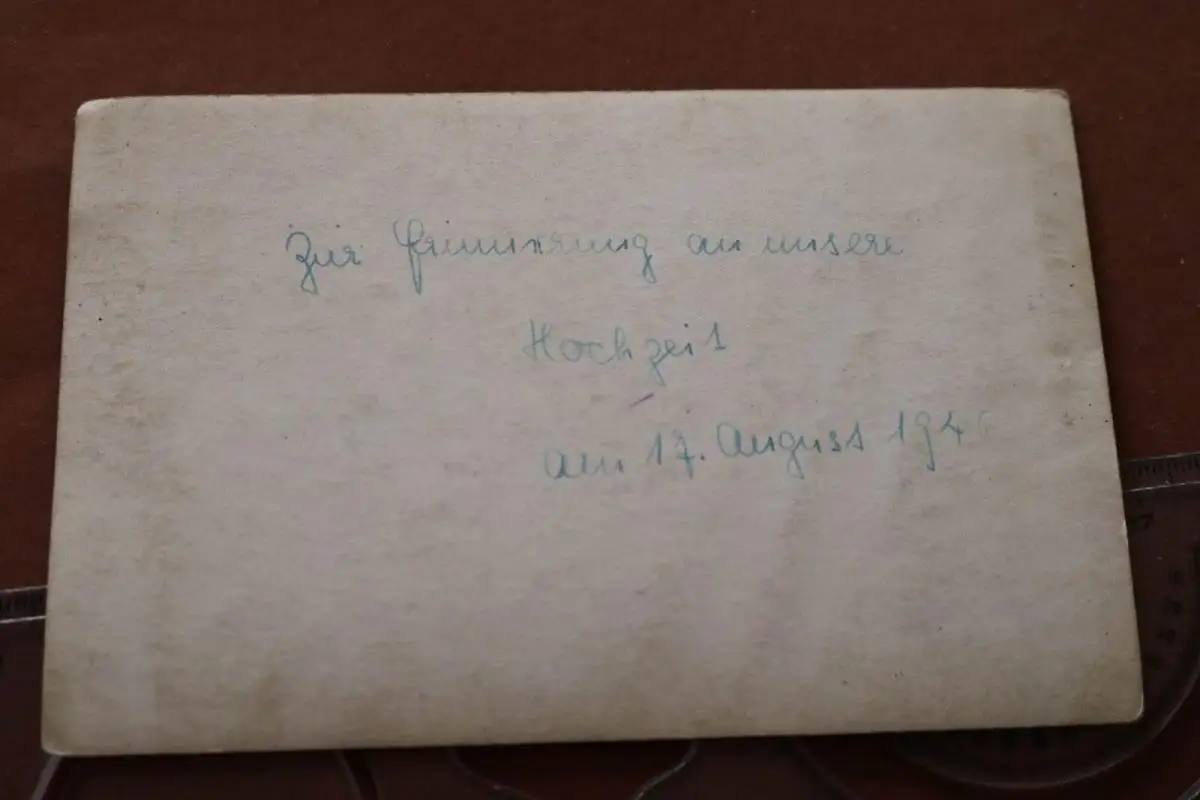 Zur Erinnerung an unsere
Hochzeit
am 17. August